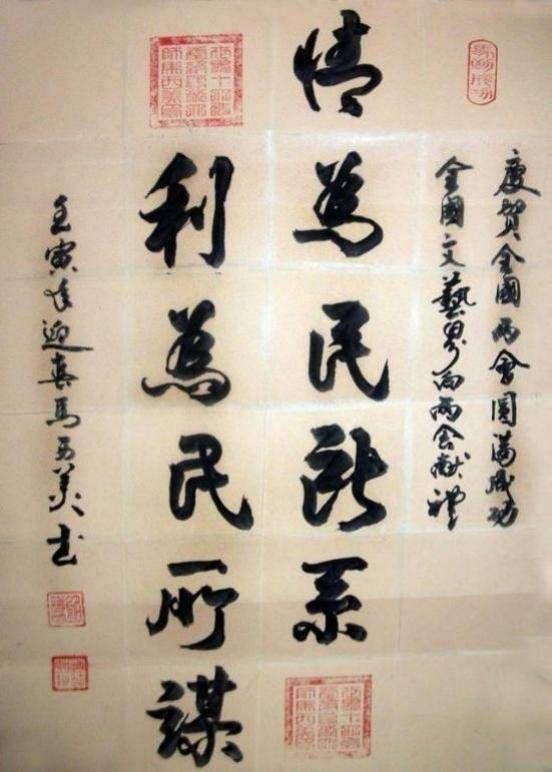 慶賀全國两會圓满成功
全國文藝界向两会献禮
情為民所系
利為民所謀
壬寅年迎春馬玉美书